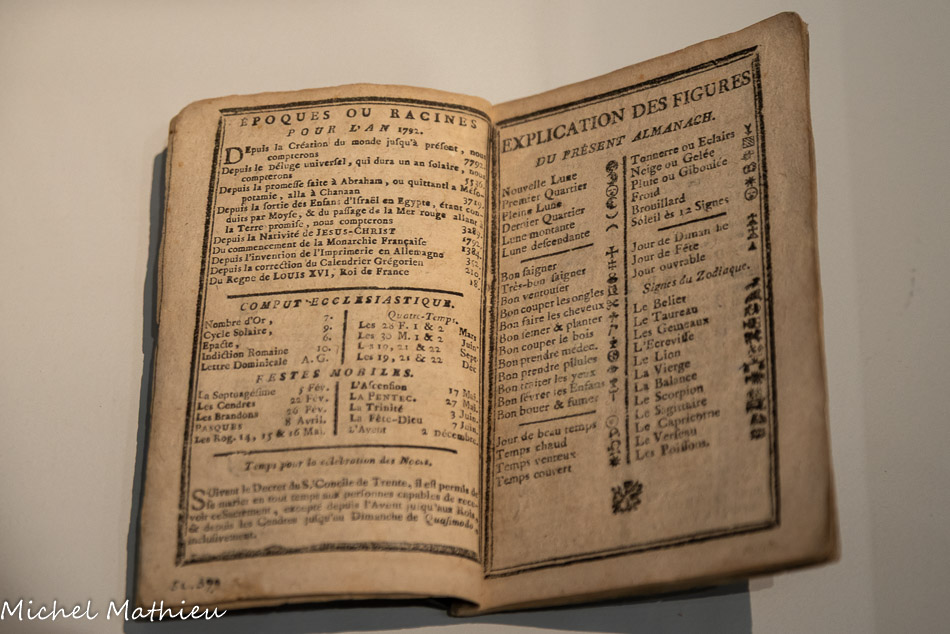 ÉPOQUES OU RACINES
POUR L'AN 1792.
Depuis la Création du monde jusqu'à préſent, nous
compterons 7792.
Depuis le Déluge univerſel, qui dura un an ſolaire, nous
compterons 5536.
Depuis la promeſſe faite à Abraham, ou quittant la Méſo-
potamie, alla à Chanaan 3719.
Depuis la ſortie des Enfans d'Iſraël en Egypte, étant con-
duits par Moyſe, & du paſſage de la Mer rouge allant à
la Terre promiſe, nous compterons 3289.
Depuis la Nativité de JESUS-CHRIST 1792.
Du commencement de la Monarchie Françaiſe 1384.
Depuis l'invention de l'Imprimerie en Allemagne
Depuis la correction du Calendrier Grégorien 210.
Du Regne de LOUIS XVI, Roi de France 18.
COMPUT ECCLESIASTIQUE.
Nombre d'Or, 7.
Cycle Solaire, 9.
Epacte, 6.
Indiction Romaine 10.
Lettre Dominicale A. G.
Quatre-Temps.
Les 28 F. 1 & 2 Mars.
Les 30 M. 1 & 2 Juin.
Les 19, 21 & 22 Sept.
Les 19, 21 & 22 Déc.
FESTES MOBILES.
La Septuagéſime 5 Fév.
Les Cendres 22 Fév.
Les Brandons 26 Fév.
PASQUES 8 Avril.
Les Rog. 14, 15 & 16 Mai.
L'Aſcenſion 17 Mai.
LA PENTEC. 27 Mai.
La Trinité 3 Juin.
La Fête-Dieu 7 Juin.
L'Avent 2 Décembre.
Temps pour la célébration des Noces.
SUivant le Decret du S. Concile de Trente, il eſt permis de
ſe marier en tout temps aux perſonnes capables de rece-
voir ce Sacrement, excepté depuis l'Avent juſqu'aux Rois,
& depuis les Cendres juſqu'au Dimanche de Quaſimodo,
incluſivement.
EXPLICATION DES FIGURES
DU PRÉSENT ALMANACH.
Nouvelle Lune
Premier Quartier
Pleine Lune
Dernier Quartier
Lune montante
Lune deſcendante
Bon ſaigner
Très-bon ſaigner
Bon ventouſer
Bon couper les ongles
Bon faire les cheveux
Bon ſemer & planter
Bon couper le bois
Bon prendre médec.
Bon prendre pilules
Bon traiter les yeux
Bon ſevrer les Enfans
Bon bouer & fumer
Jour de beau temps
Temps chaud
Temps venteux
Temps couvert
Tonnerre ou Eclairs
Neige ou Gelée
Pluie ou Giboulée
Froid
Brouillard
Soleil ès 12 Signes
Jour de Dimanche
Jour de Fête
Jour ouvrable
Signes du Zodiaque.
Le Belier
Le Taureau
Les Gemeaux
L'Ecreviſſe
Le Lion
La Vierge
La Balance
Le Scorpion
Le Sagittaire
Le Capricorne
Le Verſeau
Les Poiſſons.
Michel Mathieu